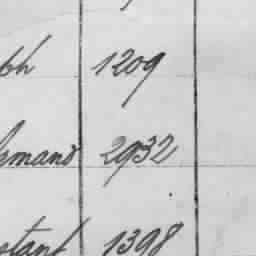 ph 1209
rmand 2932
nstant 1398